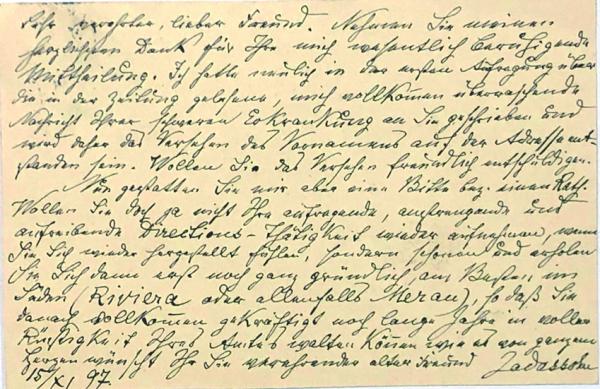 Sehr verehrter, lieber Freund. Nehmen Sie meinen
herzlichsten Dank für Ihre mich wesentlich beruhigende
Mittheilung. Ich hatte neulich in der ersten Aufregung über
die in der Zeitung gelesene, mich vollkomen überraschende
Nachricht Ihrer schweren Erkrankung an Sie geschrieben und
wird daher das Versehen des Vornamens auf der Adresse ent-
standen sein. Wollen Sie das Versehen freundlich entschuldigen.
Nun gestatten Sie mir aber eine Bitte bez. einen Rath.
Wollen Sie doch ja nicht Ihre aufregende, anstrengende und
aufreibende Directions-Thätigkeit wieder aufnehmen, wenn
Sie Sich wieder hergestellt fühlen, sondern schonen und erholen
Sie Sich dann erst noch ganz gründlich, am Besten im
Süden (Riviera oder allenfalls Meran), so daß Sie
danach vollkomen gekräftigt noch lange Jahre in voller
Rüstigkeit Ihres Amtes walten könen wie es von ganzem
Herzen wünscht Ihr Sie verehrender alter Freund Jadassohn
15/XI 97.